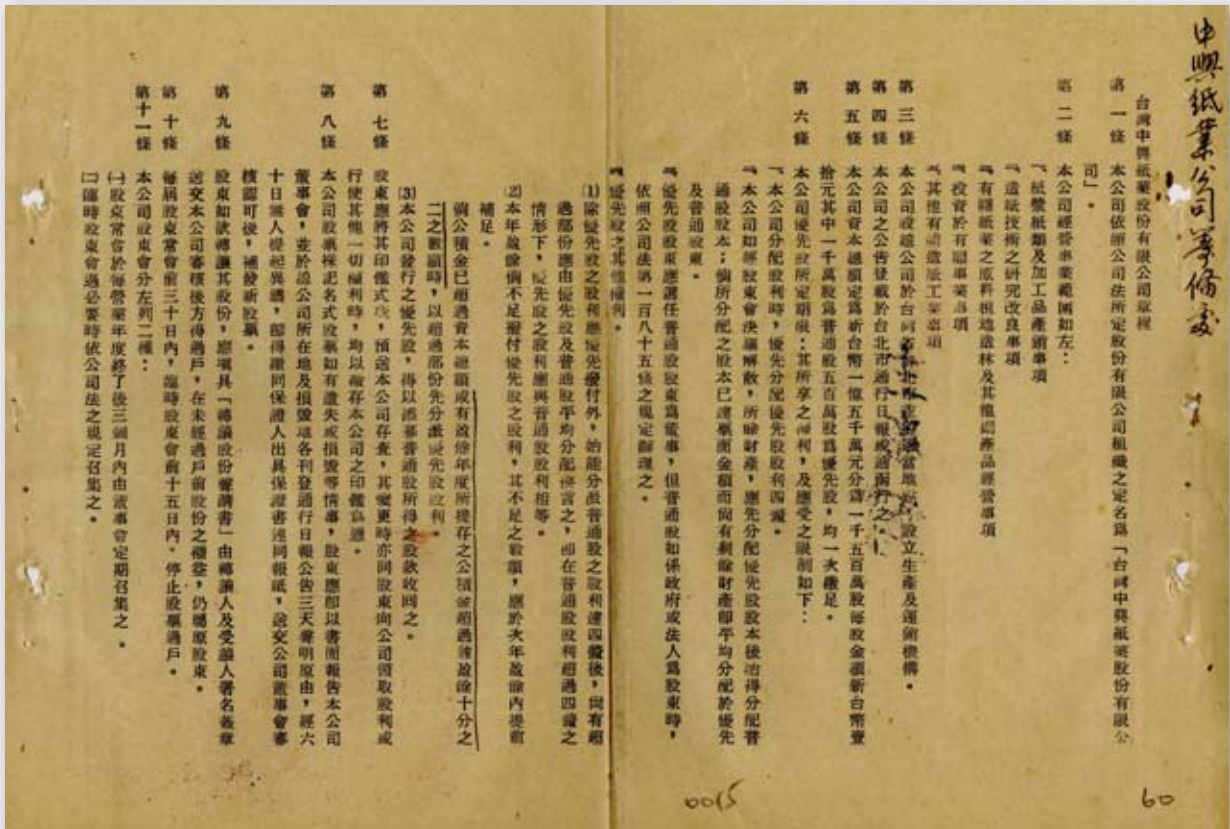 中興紙業公司籌備處
台灣中興紙業股份有限公司章程
第一條 本公司依照公司法所定股份有限公司組織之定名為「台灣中興紙業股份有限公
司」。
第二條 本公司經營事業範圍如左：
紙漿紙類及加工品產銷事項
造紙技術之研究改良事項
有關紙業之原料租地造林及其他副產品經營事項
投資於有關事業事項
其他有關造紙工業事項
第三條 本公司設總公司於台灣省台北市 當地 設立生產及運銷機構。
第四條 本公司之公告登載於台北市通行日報或通函行之。
第五條 本公司資本總額定為新台幣一億五千萬元分為一千五百萬股每股金額新台幣壹
拾元其中一千萬股為普通股五百萬股為優先股，均一次繳足。
第六條 本公司優先股所定期限：其所享之權利，及應受之限制如下：
本公司分配股利時，優先分配優先股股利四釐。
本公司如經股東會決議解散，所餘財產，應先分配優先股股本後始得分配普
通股股本；倘所分配之股本已達票面金額而尚有剩餘財產即平均分配於優先
及普通股東。
優先股股東應選任普通股股東為董事，但普通股如係政府或法人為股東時，
依照公司法第一百八十五條之規定辦理之。
優先股之其他權利。
(1)除優先股之股利應優先撥付外，始能分派普通股之股利達四釐後，尚有超
過部份應由優先股及普通股平均分配換言之，即在普通股股利超過四釐之
情形下，優先股之股利應與普通股股利相等。
(2)本年盈餘倘不足撥付優先股之股利，其不足之數額，應於次年盈餘內提前
補足。
倘公積金已超過資本總額或有盈餘年度所提存之公積金超過該盈餘十分之
二之數額時，以超過部份先分派優先股股利。
(3)本公司發行之優先股，得以添募普通股所得之股款收回之。
第七條 股東應將其印鑑式樣，預送本公司存查，其變更時亦同股東向公司領取股利或
行使其他一切權利時，均以繳存本公司之印鑑為憑。
第八條 本公司股票採記名式股票如有遺失或損毀等情事，股東應即以書面報告本公司
董事會，並於該公司所在地及損毀地各刊登通行日報公告三天聲明原由，經六
十日無人提起異議，即得邀同保證人出具保證書連同報紙，送交公司董事會審
核認可後，補發新股票。
第九條 股東如欲轉讓其股份，應填具「轉讓股份聲請書」由轉讓人及受讓人署名蓋章
送交本公司審核後方得過戶，在未經過戶前股份之權益，仍屬原股東。
第十條 每屆股東常會前三十日內，臨時股東會前十五日內。停止股票過戶。
第十一條 本公司股東會分左列二種：
㈠股東常會於每營業年度終了後三個月內由董事會定期召集之。
㈡臨時股東會遇必要時依公司法之規定召集之。
0015
60